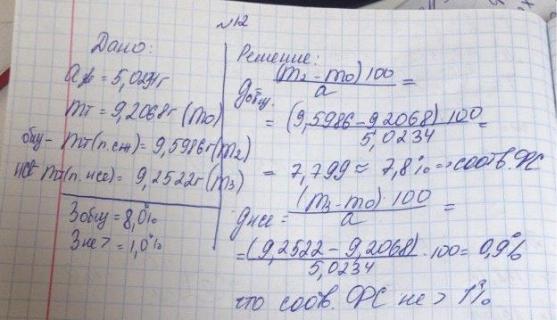 №12
Дано:
aф = 5,0234г
mт = 9,2068г (m0)
общ - mт(п.сж) = 9,5986г(m2)
нсе mт(п.нсе) = 9,2522г (m3)
Зобщ = 8,0%
Знe > = 1,0%
Решение:
Gобщ. (m2 - m0) 100 / a =
= (9,5986 - 9,2068) 100 / 5,0234 =
= 7,799 ≈ 7,8% => соотв. ФС
Gнсе = (m3 - m0) 100 / a =
= (9,2522 - 9,2068) / 5,0234 · 100 = 0,9%
что соотв. ФС не > 1%